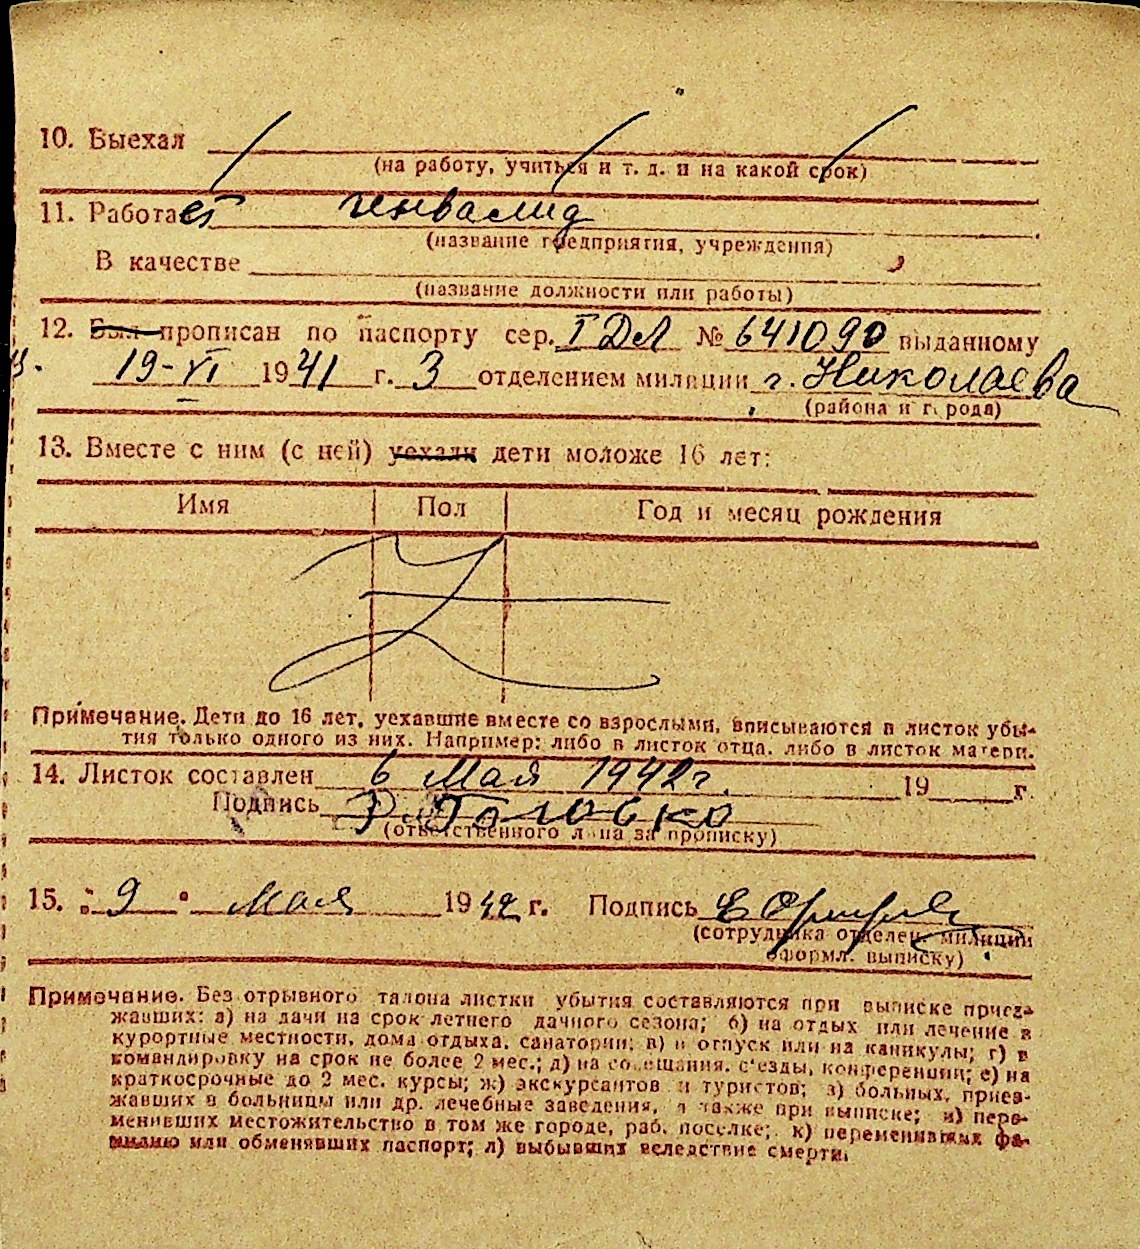 10. Выехал
(на работу, учиться и т. д. и на какой срок)
11. Работает генвалид
(название предприятия, учреждения)
В качестве
(название должности или работы)
12. Был прописан по паспорту сер. I ДЛ № 641090 выданному
19-VI 1941 г. 3 отделением милиции г. Николаева
(района и города)
13. Вместе с ним (с ней) уехали дети моложе 16 лет:
Имя Пол Год и месяц рождения
Примечание. Дети до 16 лет, уехавшие вместе со взрослыми, вписываются в листок убы-
тия только одного из них. Например: либо в листок отца, либо в листок матери.
14. Листок составлен 6 Мая 1942 г. 19 г.
Подпись Головко
(ответственного лица за прописку)
15. " 9 " Мая 1942 г. Подпись
(сотрудника отделен. милиции
оформл. выписку)
Примечание. Без отрывного талона листки убытия составляются при выписке приез-
жавших: а) на дачи на срок летнего дачного сезона; б) на отдых или лечение в
курортные местности, дома отдыха, санатории; в) в отпуск или на каникулы; г) в
командировку на срок не более 2 мес.; д) на совещания, с'езды, конференции; е) на
краткосрочные до 2 мес. курсы; ж) экскурсантов и туристов; з) больных, приез-
жавших в больницы или др. лечебные заведения, а также при выписке; и) пере-
менивших местожительство в том же городе, раб. поселке; к) переменивших фа-
милию или обменявших паспорт; л) выбывших вследствие смерти.